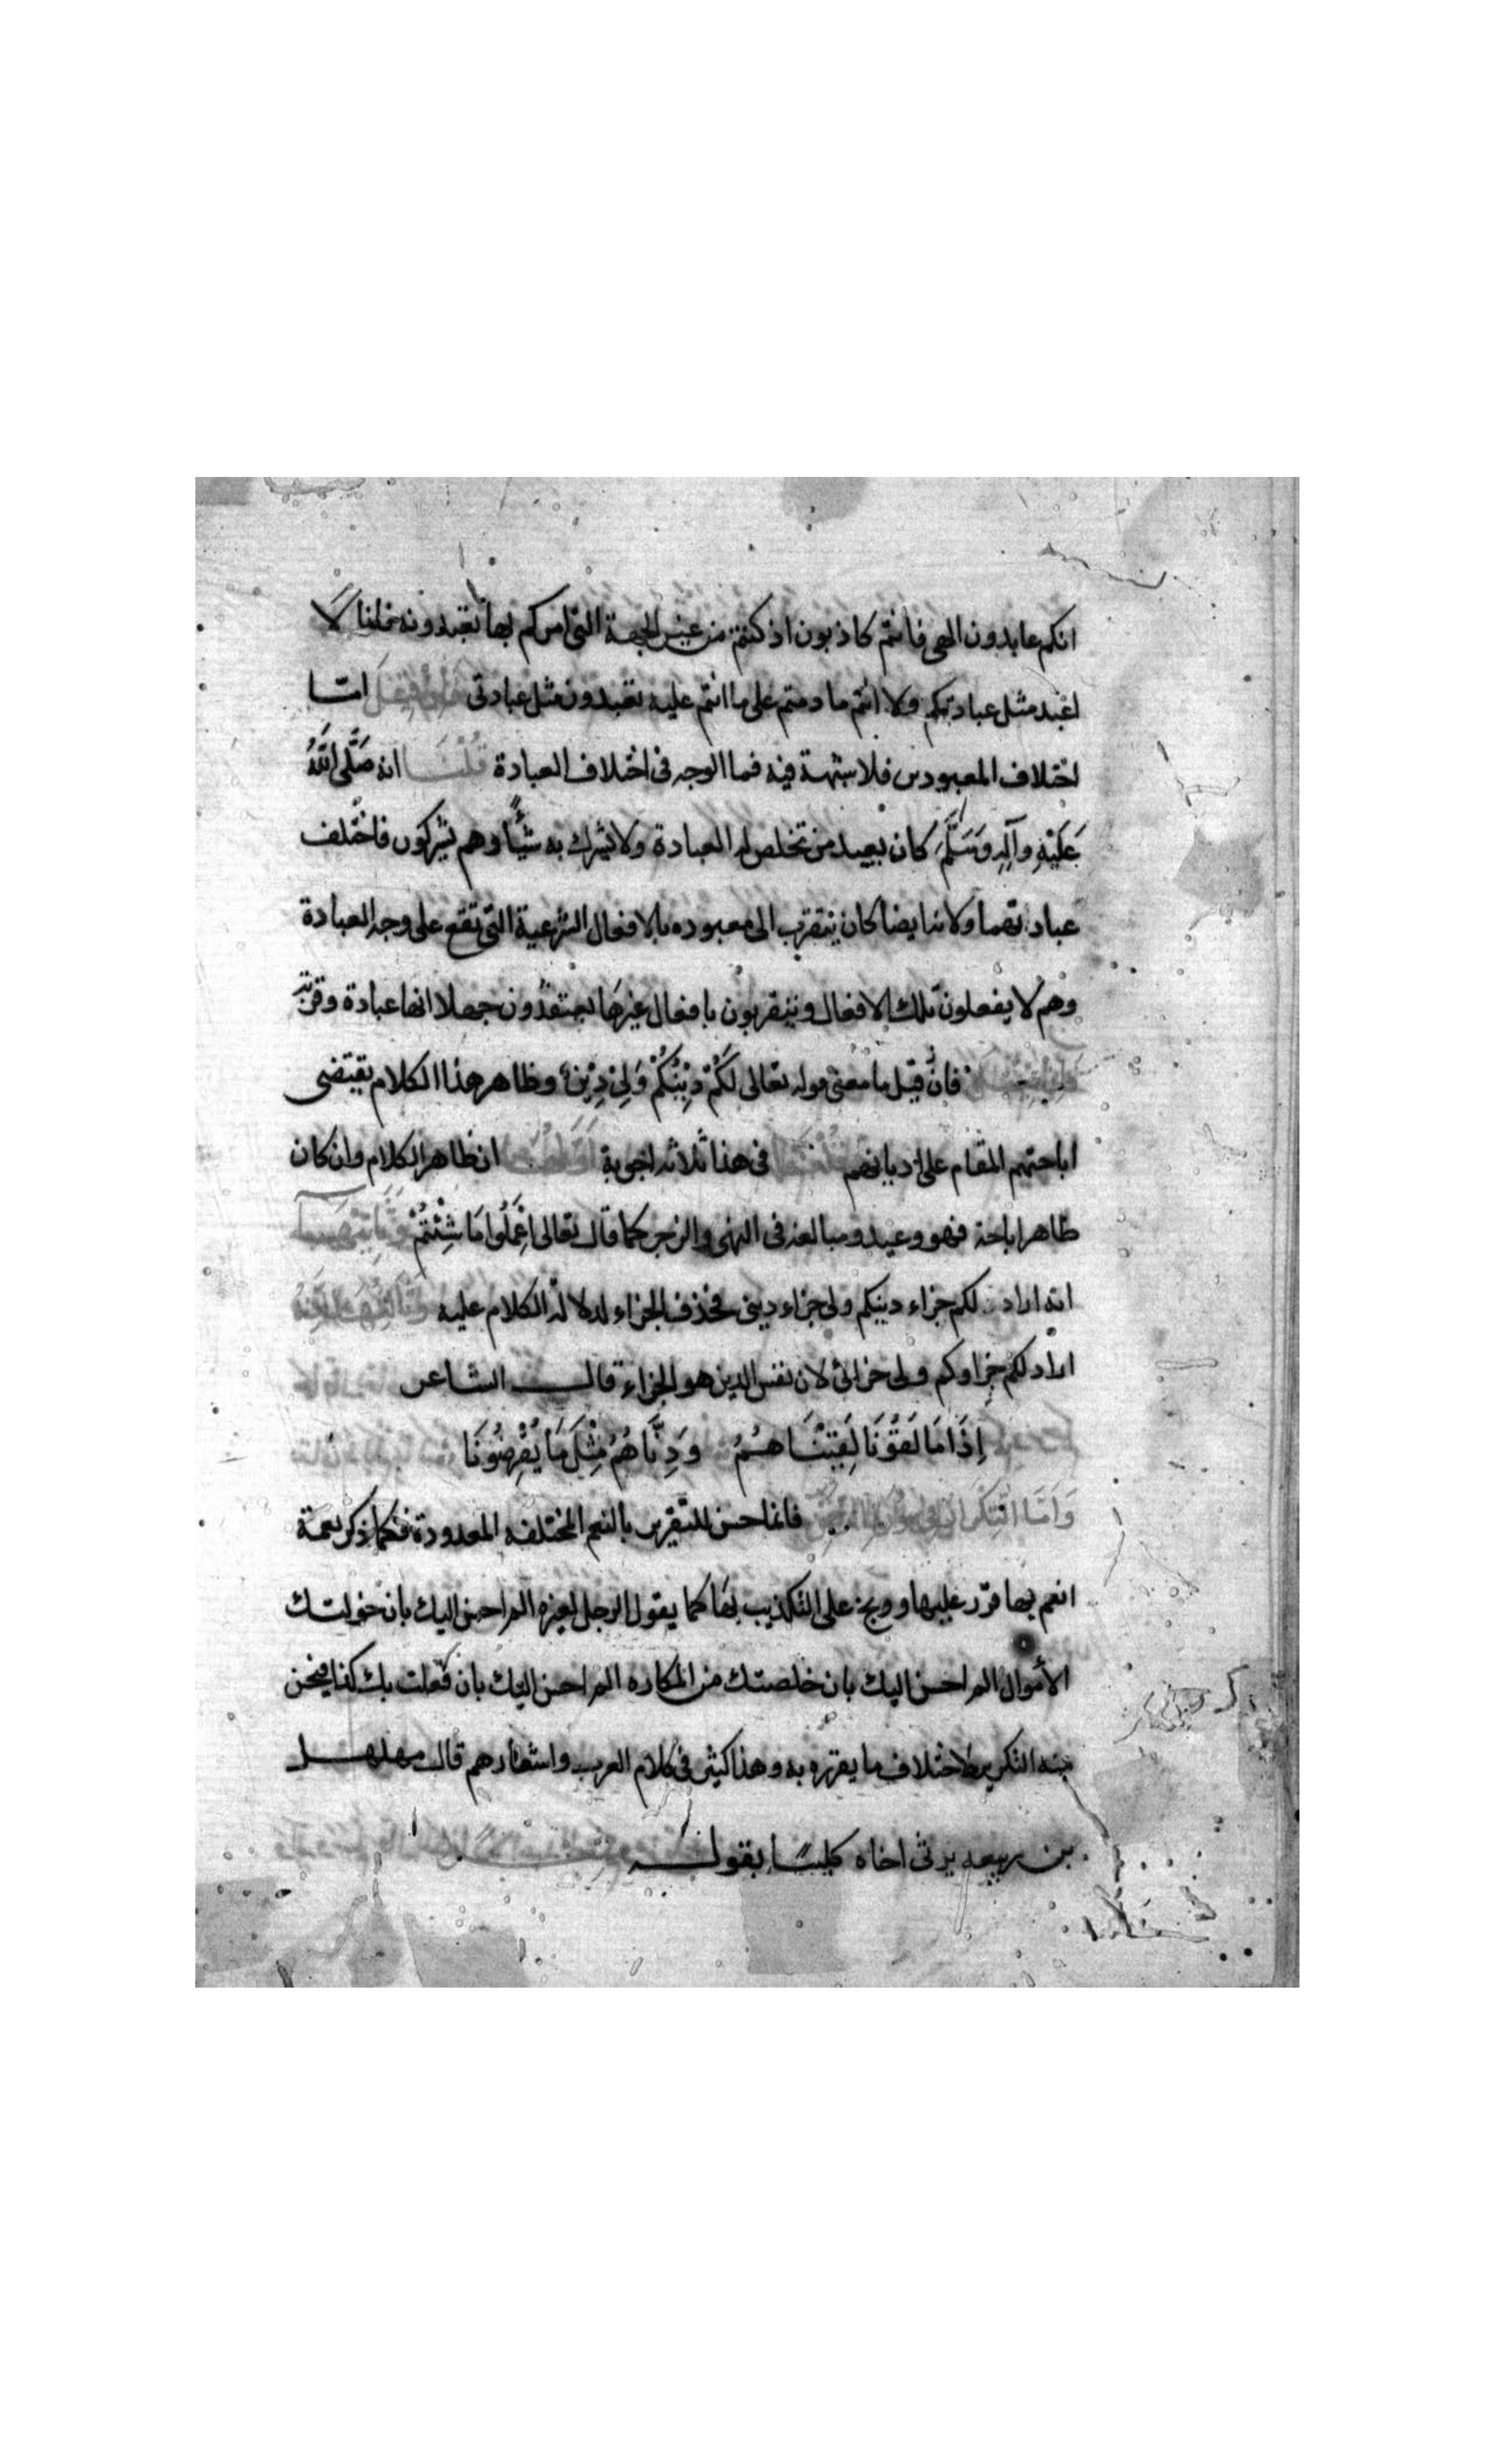 انكم عابدون الهى فانتم كاذبون اذ كنتم من غير الجهة التى امركم بها تعبدونه فلنا لا
اعبد مثل عبادتكم ولا انتم ما دمتم على ما انتم عليه تعبدون مثل عبادتى فان قيل اما
اختلاف المعبودين فلا شبهة فيه فما الوجه فى اختلاف العبادة قلنا انه صَلَّى اللهُ
عَلَيْهِ وآلِهِ وَسَلَّمَ كان يعبد من تخلص له العبادة ولا يشرك به شيئًا وهم يشركون فاختلف
عبادتهما ولانه ايضا كان يتقرب الى معبوده بالافعال الشرعية التى تقع على وجه العبادة
وهم لا يفعلون تلك الافعال ويتقربون بافعال غيرها يعتقدون جهلا انها عبادة وقربة
فان قيل فان قيل ما معنى قوله تعالى لَكُمْ دِينُكُمْ وَلِىَ دِيْنِ وظاهر هذا الكلام يقتضى
اباحتهم المقام على اديانهم قلنا فى هذا ثلاثة اجوبة اولها ان ظاهر الكلام وان كان
ظاهر اباحة فهو وعيد ومبالغة فى النهى والزجر كما قال تعالى اعْمَلُوا مَا شِئْتُمْ وَثَانِيهَا
انه اراد لكم جزاء دينكم ولى جزاء دينى فحذف الجزاء لدلالة الكلام عليه وَثَالِثُهَا انه
اراد لكم جزاوكم ولى جزائى لان نفس الدين هو الجزاء قال الشاعر
اِذَا مَا لَقُوْنَا لَقِيْنَاهُمُ وَدِنَّاهُمُ مِثْلَ مَا يُقْرِضُونَا
وَاَمَّا التكرار فى سورة الرحمن فانما حسن للتقرير بالنعم المختلفة المعدودة فكلما ذكر نعمة
انعم بها قرّر عليها ووبخ على التكذيب بها كما يقول الرجل لغيره الم احسن اليك بان خولتك
الأموال الم احسن اليك بان خلصتك من المكاره الم احسن اليك بان فعلت بك كذا فيحسن
منه التكرير لاختلاف ما يقرره به وهذا كثير فى كلام العرب واشعارهم قال مهلهل
بن ربيعه يرثى اخاه كليبًا بقوله